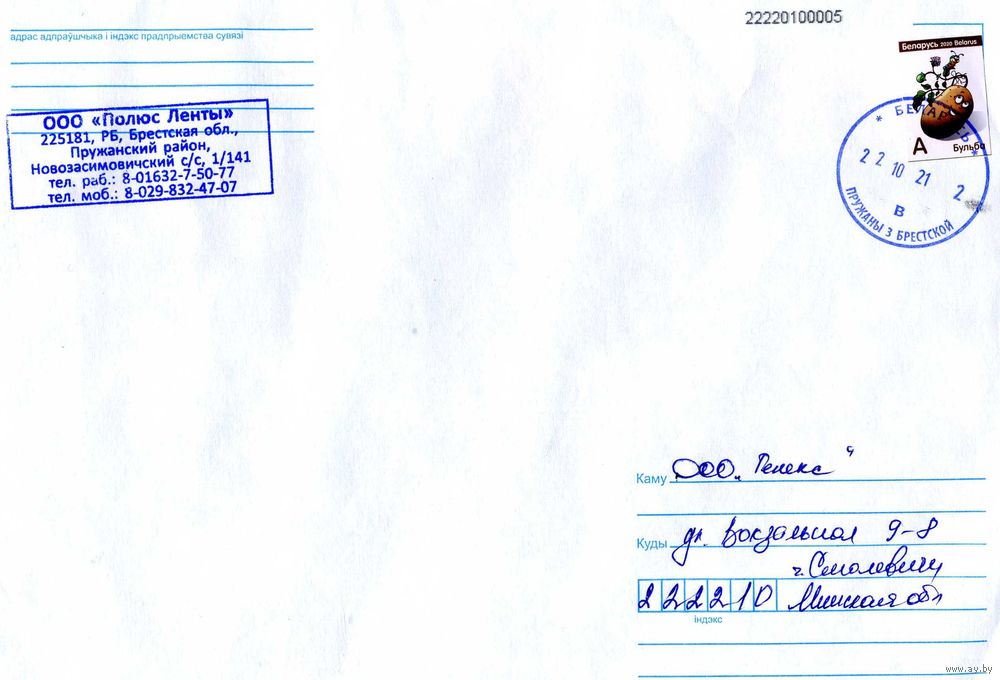 22220100005
адрас адпраўшчыка і індэкс прадпрыемства сувязі
ООО «Полюс Ленты»
225181, РБ, Брестская обл.,
Пружанский район,
Новозасимовичский с/с, 1/141
тел. раб.: 8-01632-7-50-77
тел. моб.: 8-029-832-47-07
Беларусь 2020 Belarus
А
Бульба
* БЕЛАРУСЬ *
22 10 21 2
В
ПРУЖАНЫ 3 БРЕСТСКОЙ
Каму ООО „Гелекс“
Куды ул. Вокзальная 9-8
г. Смолевичи
222210 Минская обл
індэкс
www.ay.by